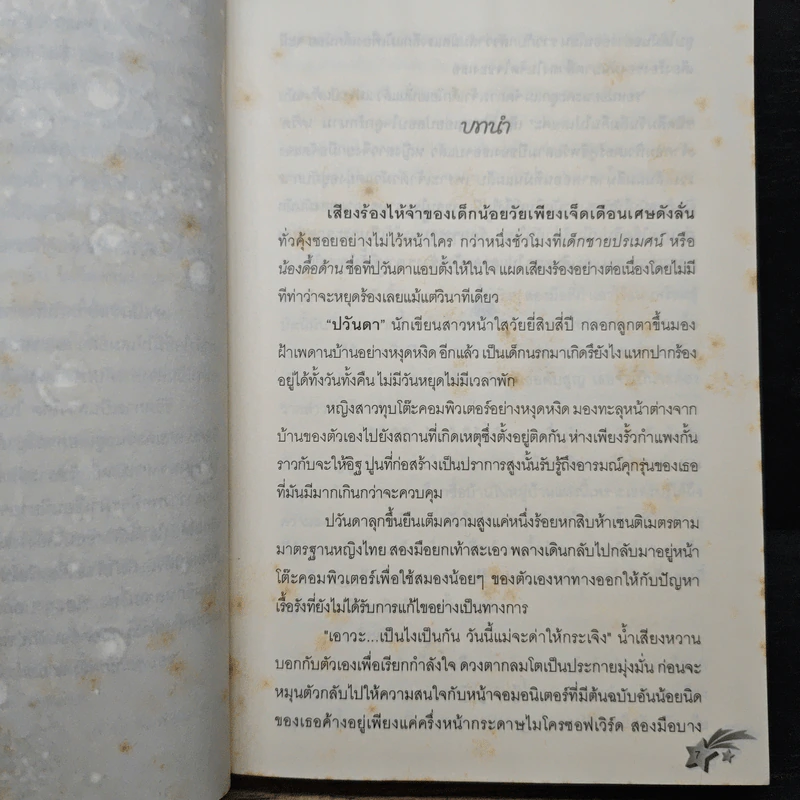 บทนำ
เสียงร้องไห้จ้าของเด็กน้อยวัยเพียงเจ็ดเดือนเศษดังลั่น
ทั่วคุ้งซอยอย่างไม่ไว้หน้าใคร กว่าหนึ่งชั่วโมงที่เด็กชายปรเมศน์ หรือ
น้องดื้อด้าน ชื่อที่ปวันดาแอบตั้งให้ในใจ แผดเสียงร้องอย่างต่อเนื่องโดยไม่มี
ทีท่าว่าจะหยุดร้องเลยแม้แต่วินาทีเดียว
“ปวันดา” นักเขียนสาวหน้าใสวัยยี่สิบสี่ปี กลอกลูกตาขึ้นมอง
ฝ้าเพดานบ้านอย่างหงุดหงิด อีกแล้ว เป็นเด็กนรกมาเกิดรึยังไง แหกปากร้อง
อยู่ได้ทั้งวันทั้งคืน ไม่มีวันหยุดไม่มีเวลาพัก
หญิงสาวทุบโต๊ะคอมพิวเตอร์อย่างหงุดหงิด มองทะลุหน้าต่างจาก
บ้านของตัวเองไปยังสถานที่เกิดเหตุซึ่งตั้งอยู่ติดกัน ห่างเพียงรั้วกำแพงกั้น
ราวกับจะให้อิฐ ปูนที่ก่อสร้างเป็นปราการสูงนั้นรับรู้ถึงอารมณ์คุกรุ่นของเธอ
ที่มันมีมากเกินกว่าจะควบคุม
ปวันดาลุกขึ้นยืนเต็มความสูงแค่หนึ่งร้อยหกสิบห้าเซนติเมตรตาม
มาตรฐานหญิงไทย สองมือยกเท้าสะเอว พลางเดินกลับไปกลับมาอยู่หน้า
โต๊ะคอมพิวเตอร์เพื่อใช้สมองน้อยๆ ของตัวเองหาทางออกให้กับปัญหา
เรื้อรังที่ยังไม่ได้รับการแก้ไขอย่างเป็นทางการ
"เอาวะ...เป็นไงเป็นกัน วันนี้แม่จะด่าให้กระเจิง" น้ำเสียงหวาน
บอกกับตัวเองเพื่อเรียกกำลังใจ ดวงตากลมโตเป็นประกายมุ่งมั่น ก่อนจะ
หมุนตัวกลับไปให้ความสนใจกับหน้าจอมอนิเตอร์ที่มีต้นฉบับอันน้อยนิด
ของเธอค้างอยู่เพียงแค่ครึ่งหน้ากระดาษไมโครซอฟเวิร์ด สองมือบาง
7